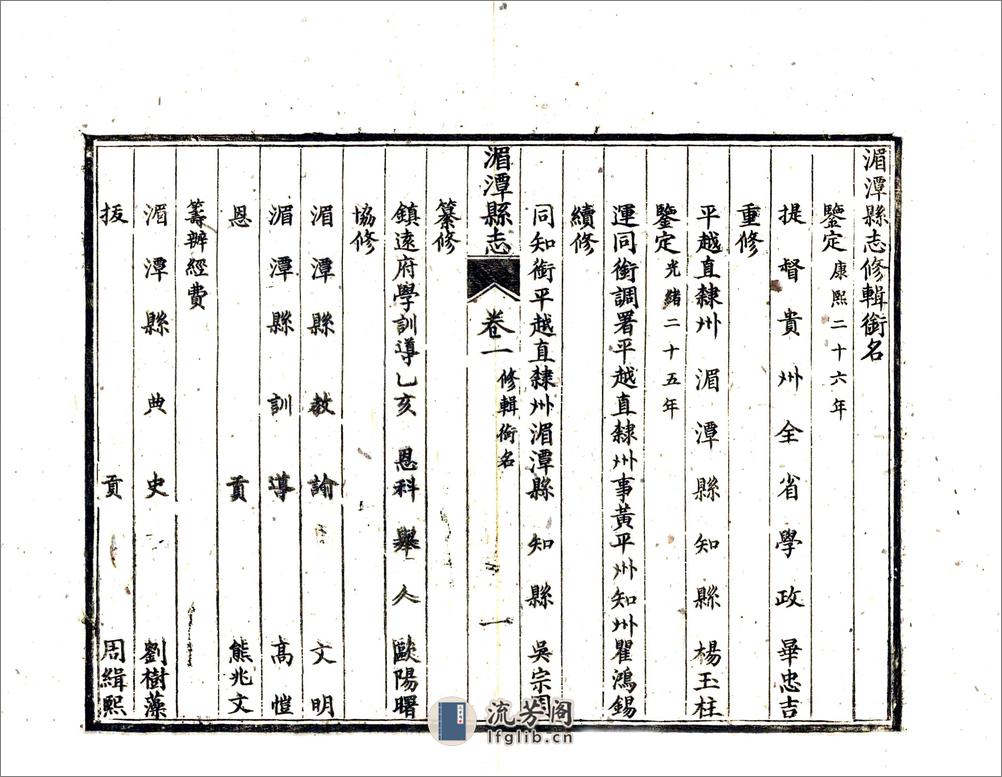 湄潭縣志修輯銜名
鑒定康熙二十六年
提督貴州全省學政畢忠吉
重修
平越直隸州湄潭縣知縣楊玉柱
鑒定光緒二十五年
運同銜調署平越直隸州事黃平州知州瞿鴻錫
續修
同知銜平越直隸州湄潭縣知縣吳宗周
湄潭縣志
卷一
修輯銜名
一
纂修
鎮遠府學訓導乙亥恩科舉人歐陽曙
協修
湄潭縣教諭文明
湄潭縣訓導高愷
恩貢熊兆文
籌辦經費
湄潭縣典史劉樹藻
拔貢周緝熙
流芳阁
lfglib.cn